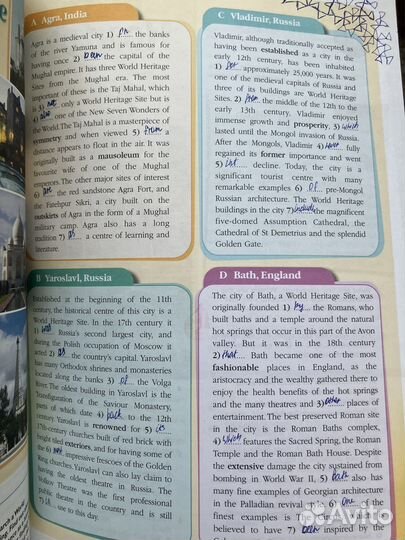 A Agra, India
Agra is a medieval city 1) on the banks
of the river Yamuna and is famous for
having once 2) been the capital of the
Mughal empire. It has three World Heritage
Sites from the Mughal era. The most
important of these is the Taj Mahal, which
is 3) not only a World Heritage Site but is
4) also one of the New Seven Wonders of
the World. The Taj Mahal is a masterpiece of
symmetry and when viewed 5) from
distance appears to float in the air. It was
originally built as a mausoleum for the
favourite wife of one of the Mughal
emperors. The other major sites of interest
6) are the red sandstone Agra Fort, and
the Fatehpur Sikri, a city built on the
outskirts of Agra in the form of a Mughal
military camp. Agra also has a long
tradition 7) as a centre of learning and
literature.
B Yaroslavl, Russia
Established at the beginning of the 11th
century, the historical centre of this city is a
World Heritage Site. In the 17th century it
1) was Russia's second largest city, and
during the Polish occupation of Moscow it
acted 2) as the country's capital. Yaroslavl
has many Orthodox shrines and monasteries
located along the banks 3) of the Volga
River. The oldest building in Yaroslavl is the
Transfiguration of the Saviour Monastery,
parts of which date 4) back to the 12th
century. Yaroslavl is renowned for 5) its
17th-century churches built of red brick with
bright tiled exteriors, and for having some of
the 6) most impressive frescoes of the Golden
Ring churches. Yaroslavl can also lay claim to
having the oldest theatre in Russia. The
Volkov Theatre was the first professional
public theatre in the country and is still
7) in use to this day.
C Vladimir, Russia
Vladimir, although traditionally accepted as
having been established as a city in the
early 12th century, has been inhabited
1) for approximately 25,000 years. It was
one of the medieval capitals of Russia and
three of its buildings are World Heritage
Sites. 2) From the middle of the 12th to the
early 13th century, Vladimir enjoyed
immense growth and prosperity, 3) which
lasted until the Mongol invasion of Russia.
After the Mongols, Vladimir 4) never fully
regained its former importance and went
5) into decline. Today, the city is a
significant tourist centre with many
remarkable examples 6) of pre-Mongol
Russian architecture. The World Heritage
buildings in the city 7) include the magnificent
five-domed Assumption Cathedral, the
Cathedral of St Demetrius and the splendid
Golden Gate.
D Bath, England
The city of Bath, a World Heritage Site, was
originally founded 1) by the Romans, who
built baths and a temple around the natural
hot springs that occur in this part of the Avon
valley. But it was in the 18th century
2) that Bath became one of the most
fashionable places in England, as the
aristocracy and the wealthy gathered there to
enjoy the health benefits of the hot springs
and the many theatres and 3) other places of
entertainment. The best preserved Roman site
in the city is the Roman Baths complex,
4) which features the Sacred Spring, the Roman
Temple and the Roman Bath House. Despite
the extensive damage the city sustained from
bombing in World War II, 5) Bath also has
many fine examples of Georgian architecture
in the Palladian revival style. 6) One of the
finest examples is The Circus, which is
believed to have 7) been inspired by the